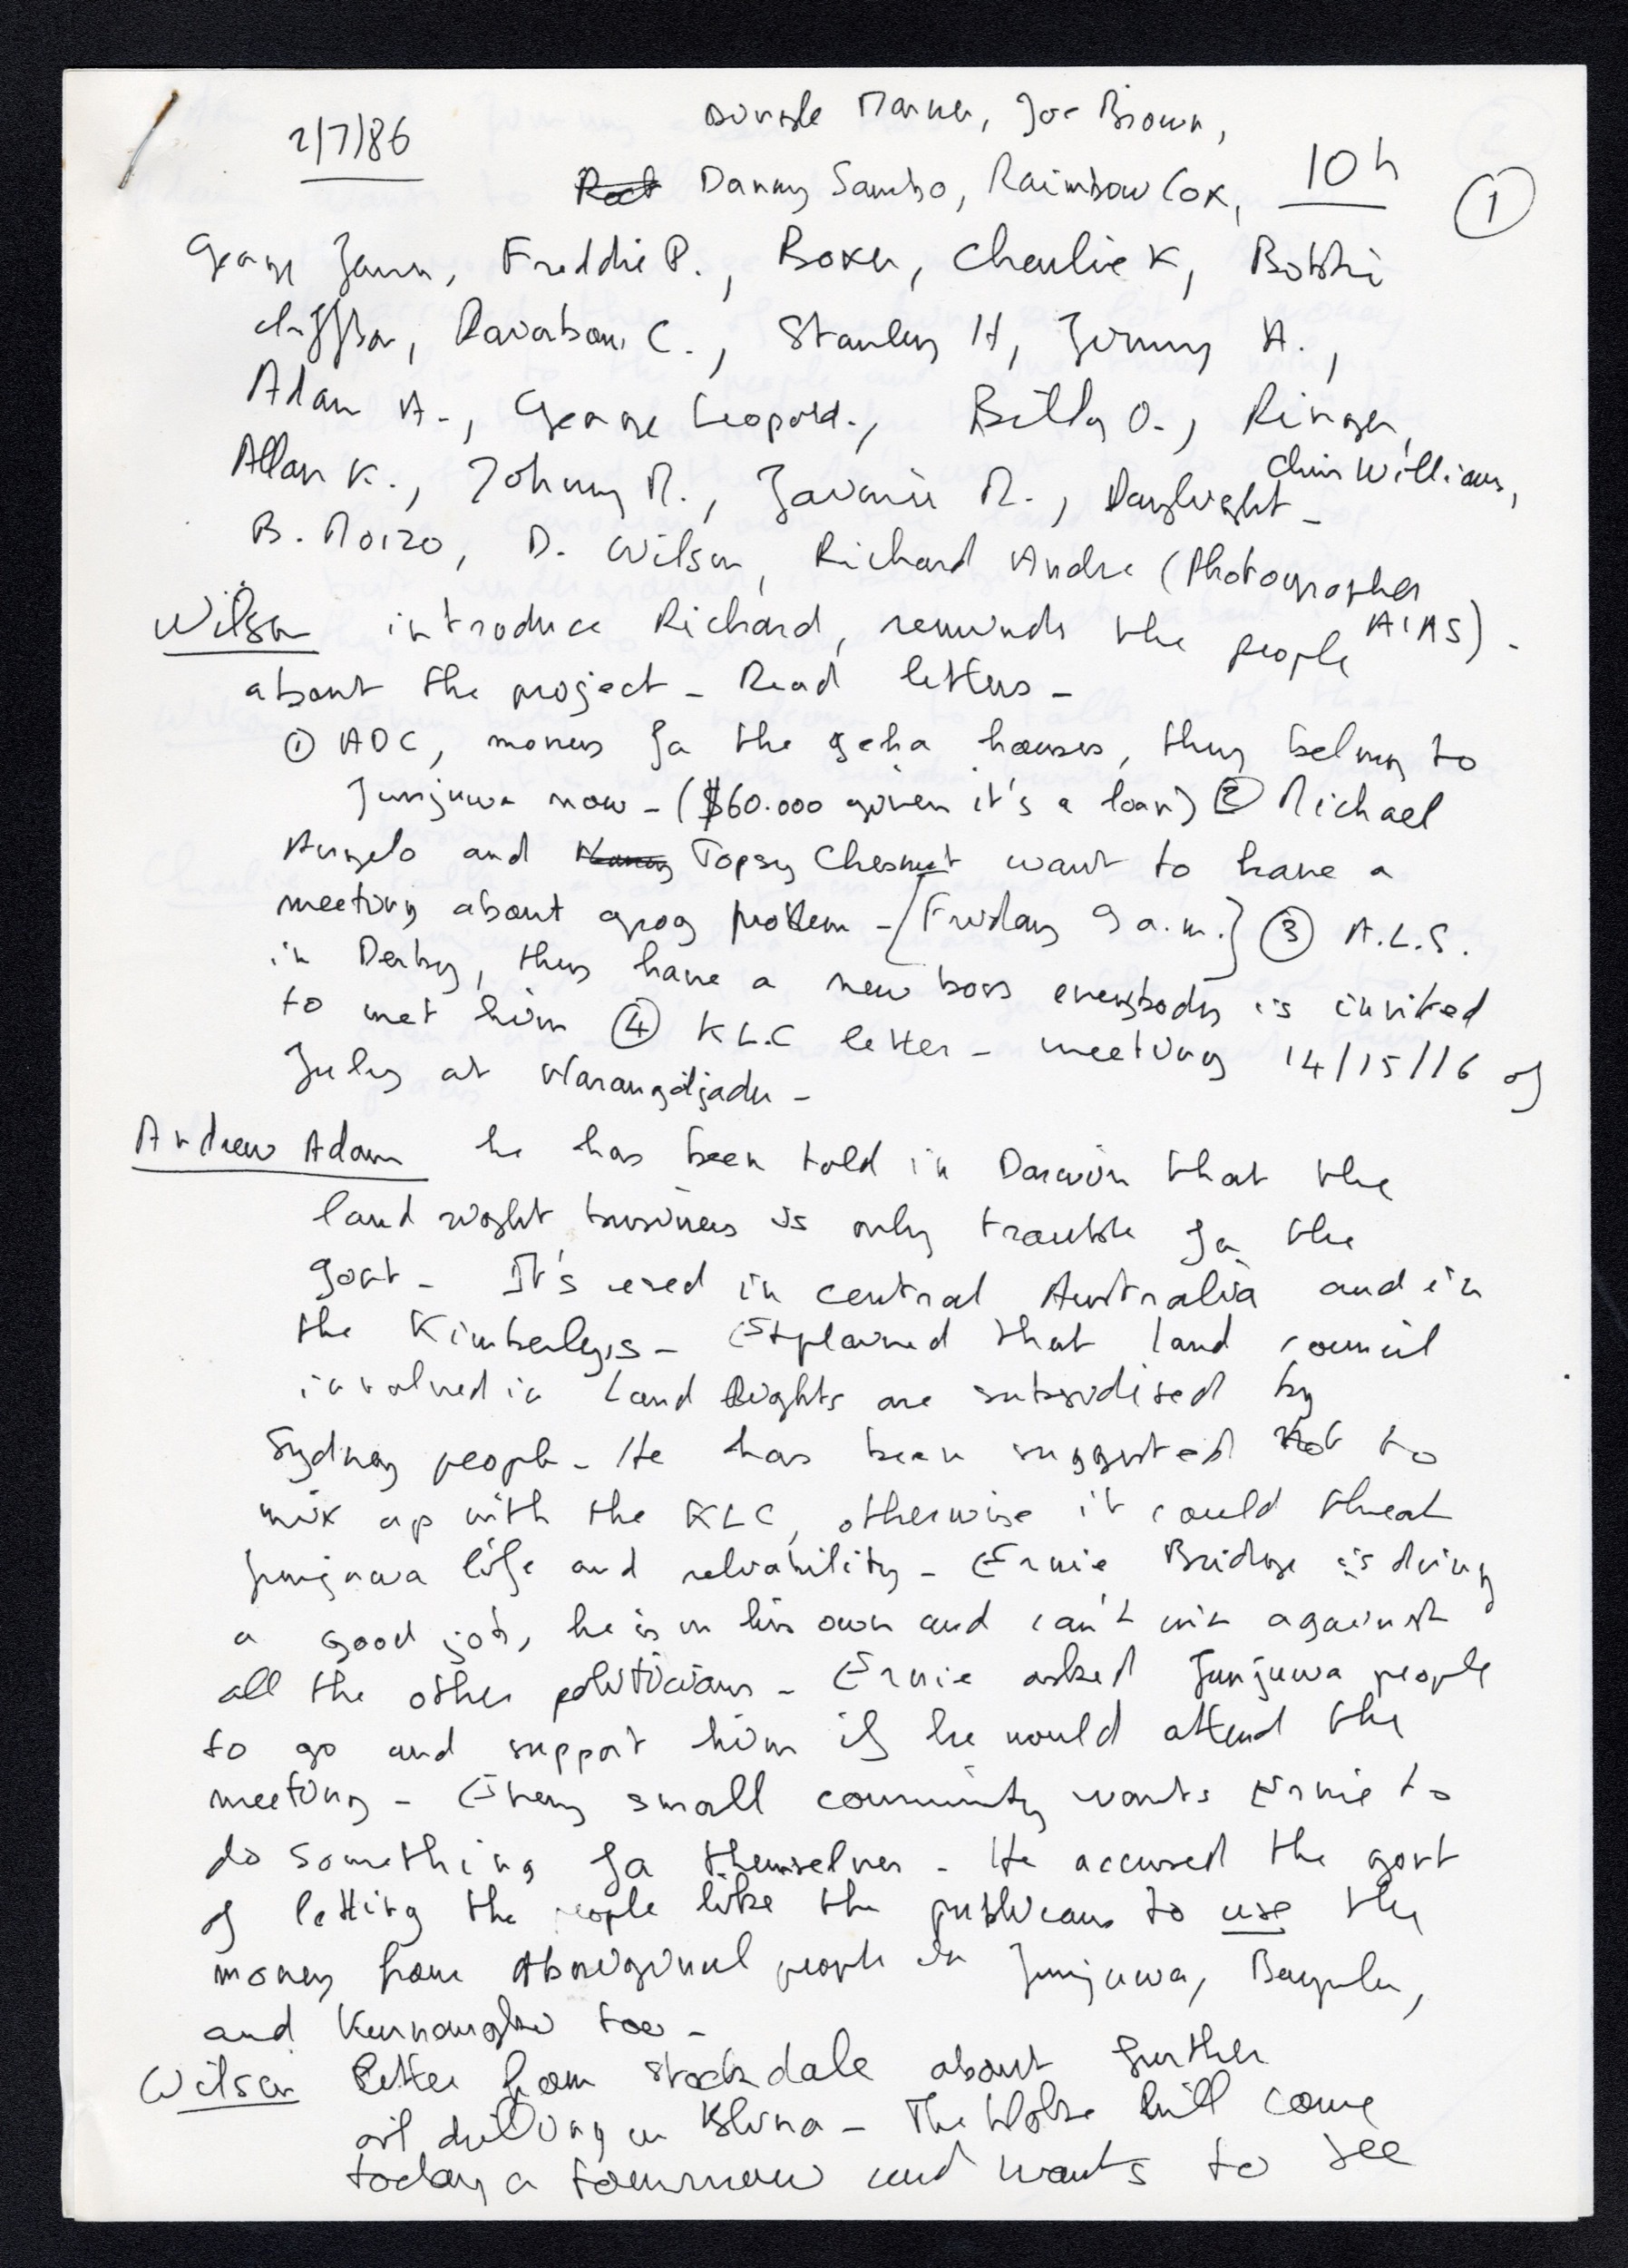 2/7/86
Joe Brown,
Danny Sambo, Rainbow Cox,
10 h
1
George James, Freddie P., Boxer, Charlie K, Bobbi
C., Stanley H, Jimmy A.,
Adam A., George Leopold., Billy O., Ringer,
Allan K., Johnny M., M., Daylight -
Chris Williams,
B. Moizo, D. Wilson, Richard Andre (Photographer
AIAS).
Wilson introduce Richard, reminds the people
about the project - Read letters -
① ADC, money for the geha houses, they belong to
Junjuwa now - ($60.000 given it's a loan) ② Michael
Angelo and Topsy Chesnut want to have a
meeting about grog problem - [Friday 9 a.m.] ③ A.L.S.
in Derby, they have a new boss everybody is invited
to met him ④ KLC letter - meeting 14/15/16 of
July at
Andrew Adam he has been told in Darwin that the
land right business is only trouble for the
govt - It's used in central Australia and in
the Kimberleys - Explained that land council
involved in Land Rights are subsidised by
Sydney people - He has been suggested not to
mix up with the KLC, otherwise it could threat
Junjuwa life and reliability - Ernie Bridge is doing
a good job, he is on his own and can't win against
all the other politicians - Ernie asked Junjuwa people
to go and support him if he would attend the
meeting - Every small community wants Ernie to
do something for themselves - He accused the govt
of letting the people like the publicans to use the
money from Aboriginal people in Junjuwa, Bayulu,
and Kurnangki too -
Wilson letter from Stockdale about further
oil drilling on Blina - The Bloke will come
today or tomorrow and wants to see